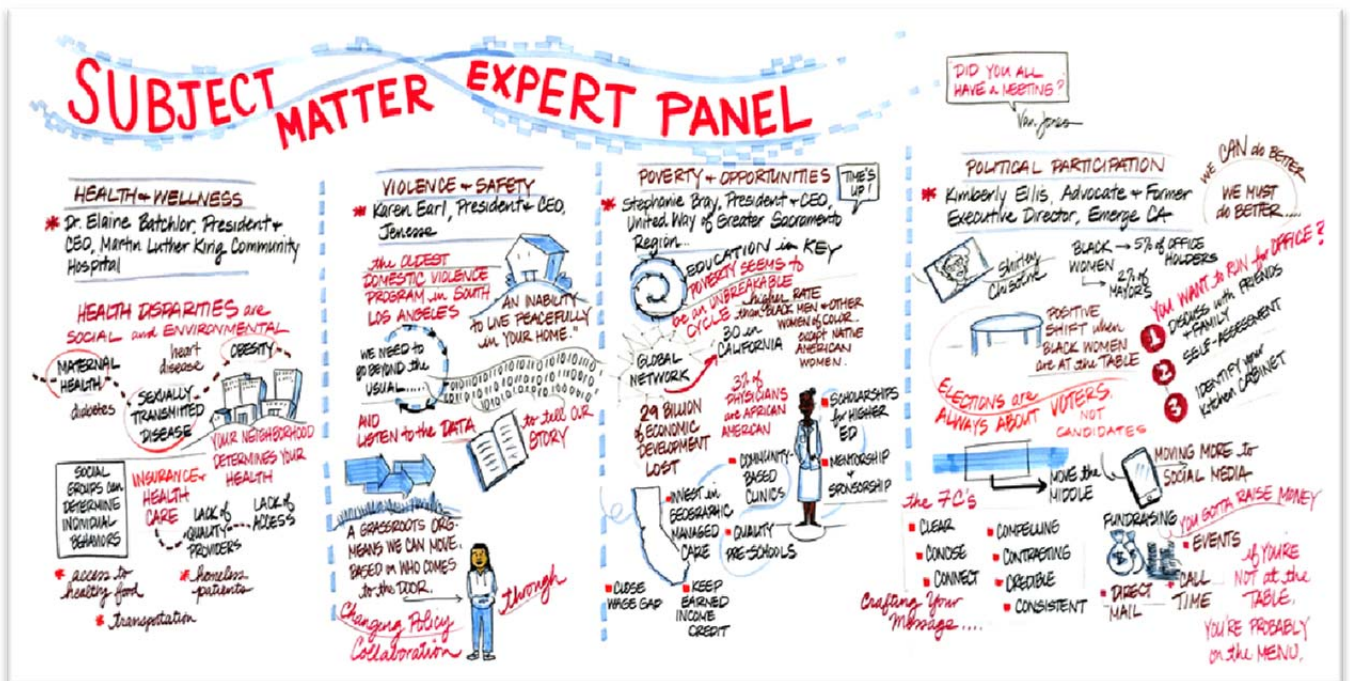 SUBJECT MATTER EXPERT PANEL
DID YOU ALL
HAVE A MEETING?
Van Jones
HEALTH & WELLNESS
* Dr. Elaine Batchlor, President &
CEO, Martin Luther King Community
Hospital
HEALTH DISPARITIES are
SOCIAL and ENVIRONMENTAL
MATERNAL
HEALTH
heart
disease
OBESITY
diabetes
SEXUALLY
TRANSMITTED
DISEASE
YOUR NEIGHBORHOOD
DETERMINES YOUR
HEALTH
SOCIAL
GROUPS can
DETERMINE
INDIVIDUAL
BEHAVIORS
INSURANCE &
HEALTH
CARE
LACK of
QUALITY
PROVIDERS
LACK of
ACCESS
* access to
healthy food
* homeless
patients
* transportation
VIOLENCE & SAFETY
* Karen Earl, President & CEO,
Jenesse
the OLDEST
DOMESTIC VIOLENCE
PROGRAM in SOUTH
LOS ANGELES
AN INABILITY
TO LIVE PEACEFULLY
in YOUR HOME."
WE NEED to
go BEYOND the
USUAL.....
AND
LISTEN to the DATA
to tell OUR
STORY
A GRASSROOTS ORG-
MEANS WE CAN MOVE.
BASED on WHO COMES
to the DOOR.
through
Changing Policy
Collaboration
POVERTY & OPPORTUNITIES
TIME'S
UP!
* Stephanie Bray, President & CEO,
United Way of Greater Sacramento
Region...
EDUCATION is KEY
POVERTY SEEMS to
be an UNBREAKABLE
CYCLE
higher RATE
than BLACK MEN & OTHER
WOMEN of COLOR.
except NATIVE
AMERICAN
WOMEN.
30 in
CALIFORNIA
GLOBAL
NETWORK
29 BILLION
of ECONOMIC
DEVELOPMENT
LOST
3% of
PHYSICIANS
are AFRICAN
AMERICAN
SCHOLARSHIPS
for HIGHER
ED
MENTORSHIP
&
SPONSORSHIP
COMMUNITY-
BASED
CLINICS
INVEST in
GEOGRAPHIC
MANAGED
CARE
QUALITY
PRE-SCHOOLS
CLOSE
WAGE GAP
KEEP
EARNED
INCOME
CREDIT
POLITICAL PARTICIPATION
* Kimberly Ellis, Advocate & Former
Executive Director, Emerge CA
WE CAN do BETTER
WE MUST
do BETTER.....
Shirley
Chisolm
BLACK → 5% of OFFICE
WOMEN HOLDERS
2% of
MAYORS
POSITIVE
SHIFT when
BLACK WOMEN
are AT the TABLE
YOU WANT to RUN for OFFICE?
1 DISCUSS with FRIENDS
& FAMILY
2 SELF-ASSESSMENT
3 IDENTIFY your
Kitchen CABINET
ELECTIONS are
ALWAYS ABOUT VOTERS.
NOT
CANDIDATES
MOVE the
MIDDLE
MOVING MORE to
SOCIAL MEDIA
the 7C's
CLEAR
CONCISE
CONNECT
COMPELLING
CONTRASTING
CREDIBLE
CONSISTENT
Crafting Your
Message....
FUNDRAISING
YOU GOTTA RAISE MONEY
EVENTS
DIRECT
MAIL
CALL
TIME
if YOU'RE
NOT at the
TABLE.
YOU'RE PROBABLY
on the MENU.